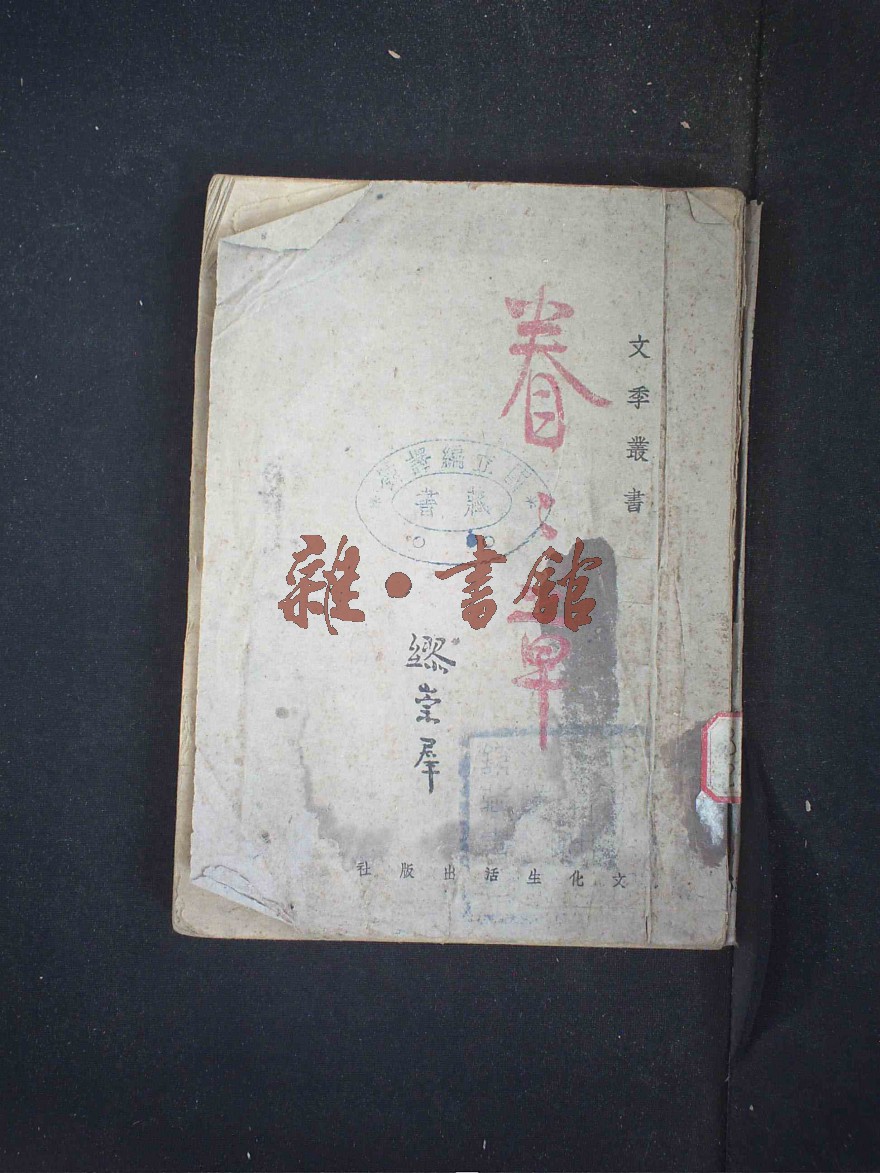 文季叢書
眷〻草
國立編譯館
藏書
雜・書館
繆崇羣
文化生活出版社